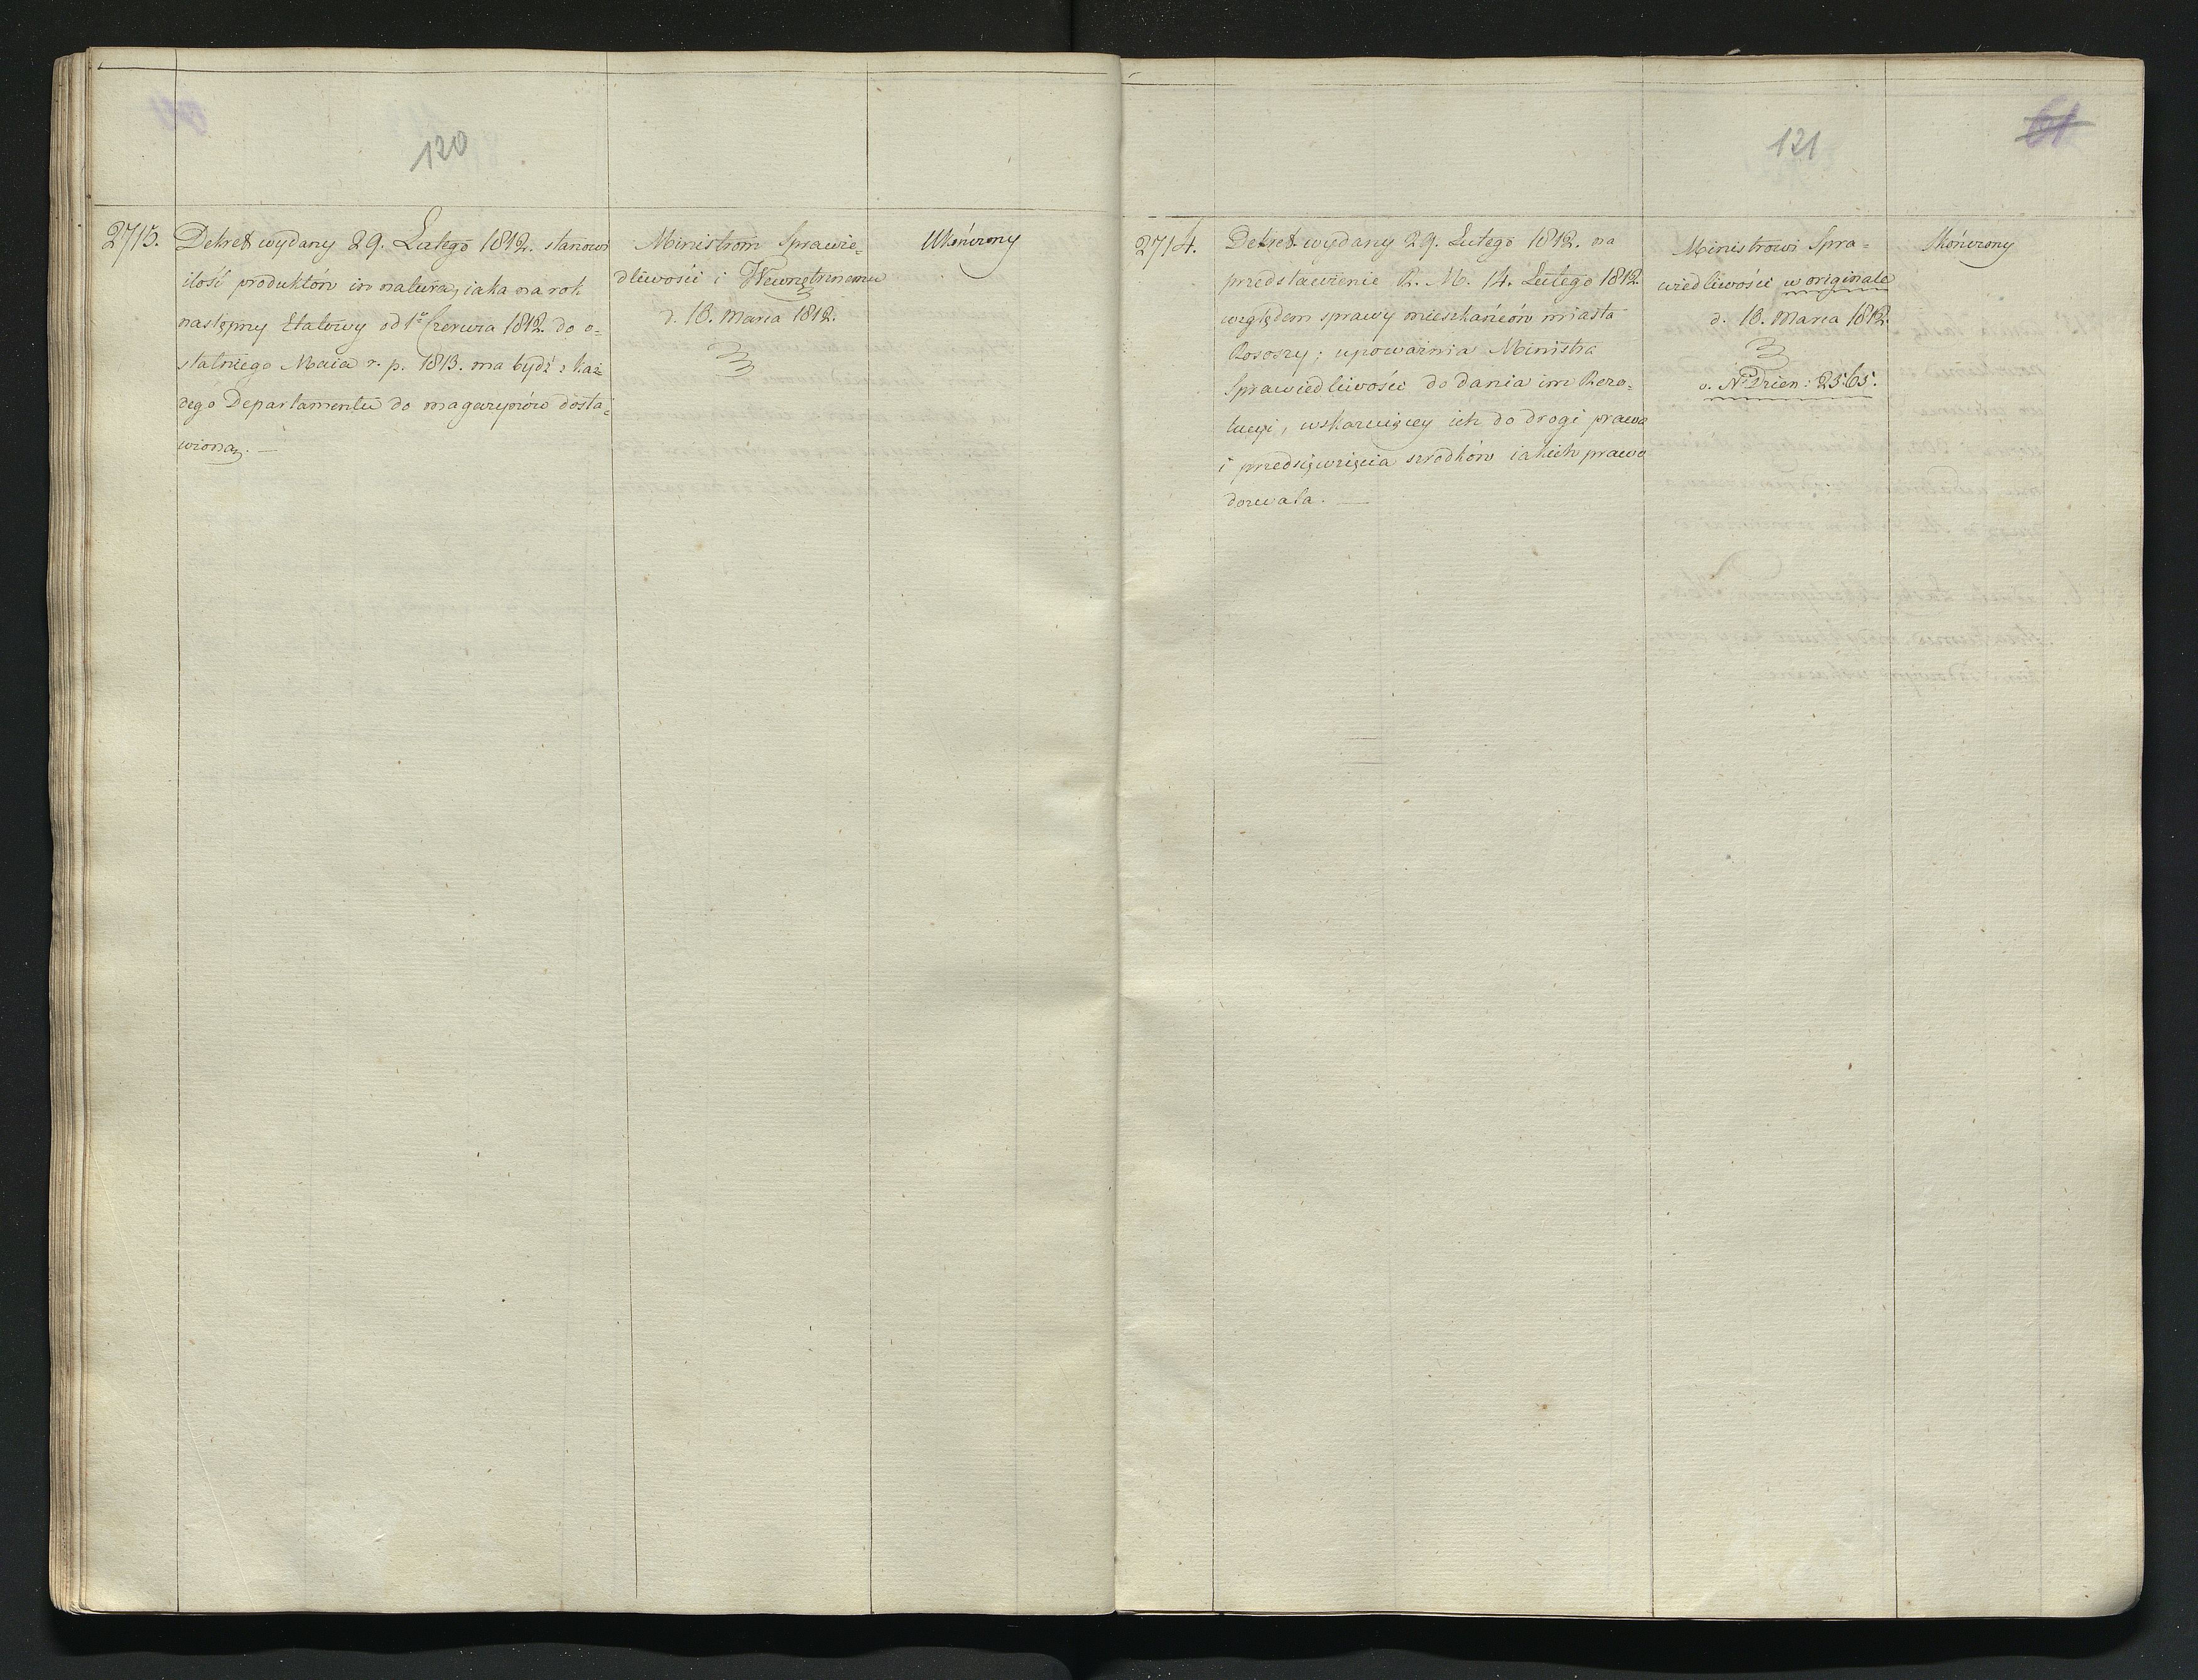 120
2713.
Dekret wydany 29. Lutego 1812. stanowi
ilość produktów in natura, iaka na rok
następny Etatowy od 1º Czerwca 1812. do o-
statniego Maia r. p. 1813. ma bydź z każ-
dego Departamentu do magazynów dosta-
wiona. —
Ministrom Sprawie-
dliwości i Wewnętrznemu
d. 13. Marca 1812.
Ukończony
121
61
2714.
Dekret wydany 29. Lutego 1812. na
przedstawienie R. M. 14. Lutego 1812
względem sprawy mieszkańców miasta
Rososzy; upoważnia Ministra
Sprawiedliwości do dania im Rezo-
lucyi, wskazuiącey ich do drogi prawa
i przedsięwzięcia szrodków iakich prawo
dozwala. —
Ministrowi Spra-
wiedliwości w originale
d. 13. Marca 1812.
v. Nº Dzien: 2565.
Skończony